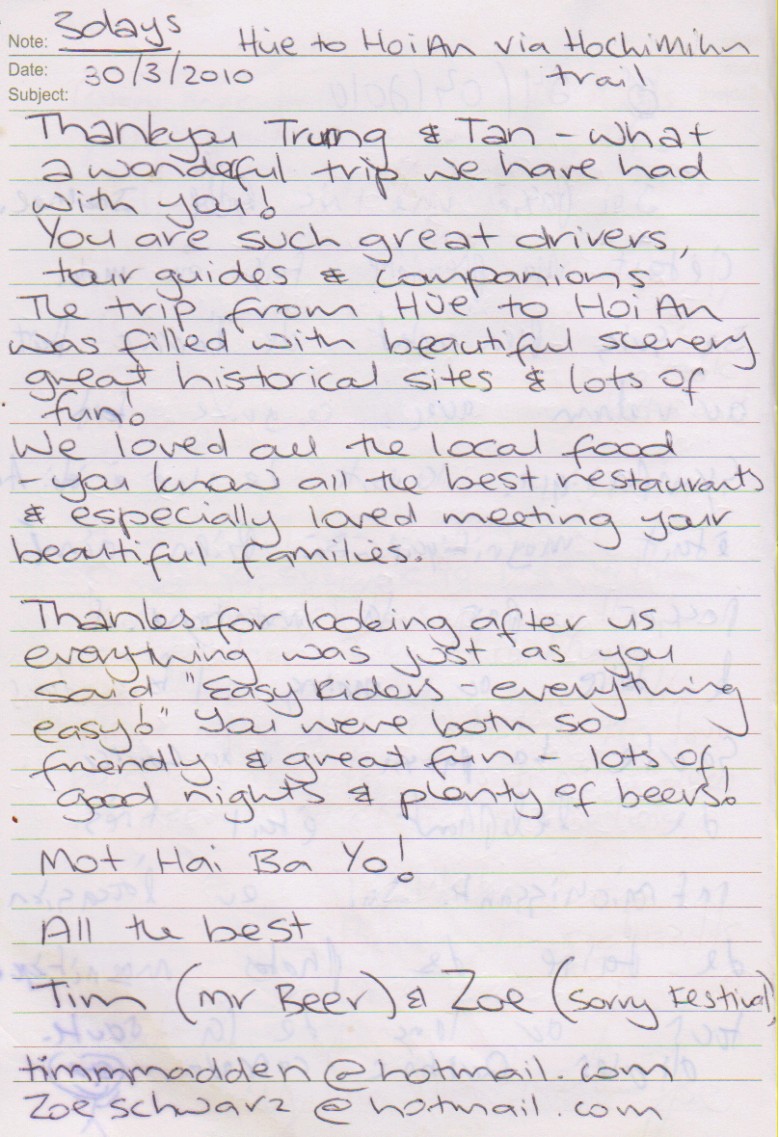 Note: 3days Hüe to HoiAn via Hochimihn
Date: 30/3/2010 trail
Subject:
Thankyou Trung & Tan - what
a wonderful trip we have had
with you!
You are such great drivers,
tour guides & companions
The trip from Hüe to Hoi An
was filled with beautiful scenery
great historical sites & lots of
fun!
We loved all the local food
you know all the best restaurants
& especially loved meeting your
beautiful families.
Thanks for looking after us
everything was just as you
said "Easy riders everything
easy!" You were both so
friendly & great fun - lots of
good nights & plenty of beers!
Mot Hai Ba Yo!
All the best
Tim (mr Beer) & Zoe (Sorry Festival)
timmmadden@hotmail.com
Zoeschwarz@hotmail.com